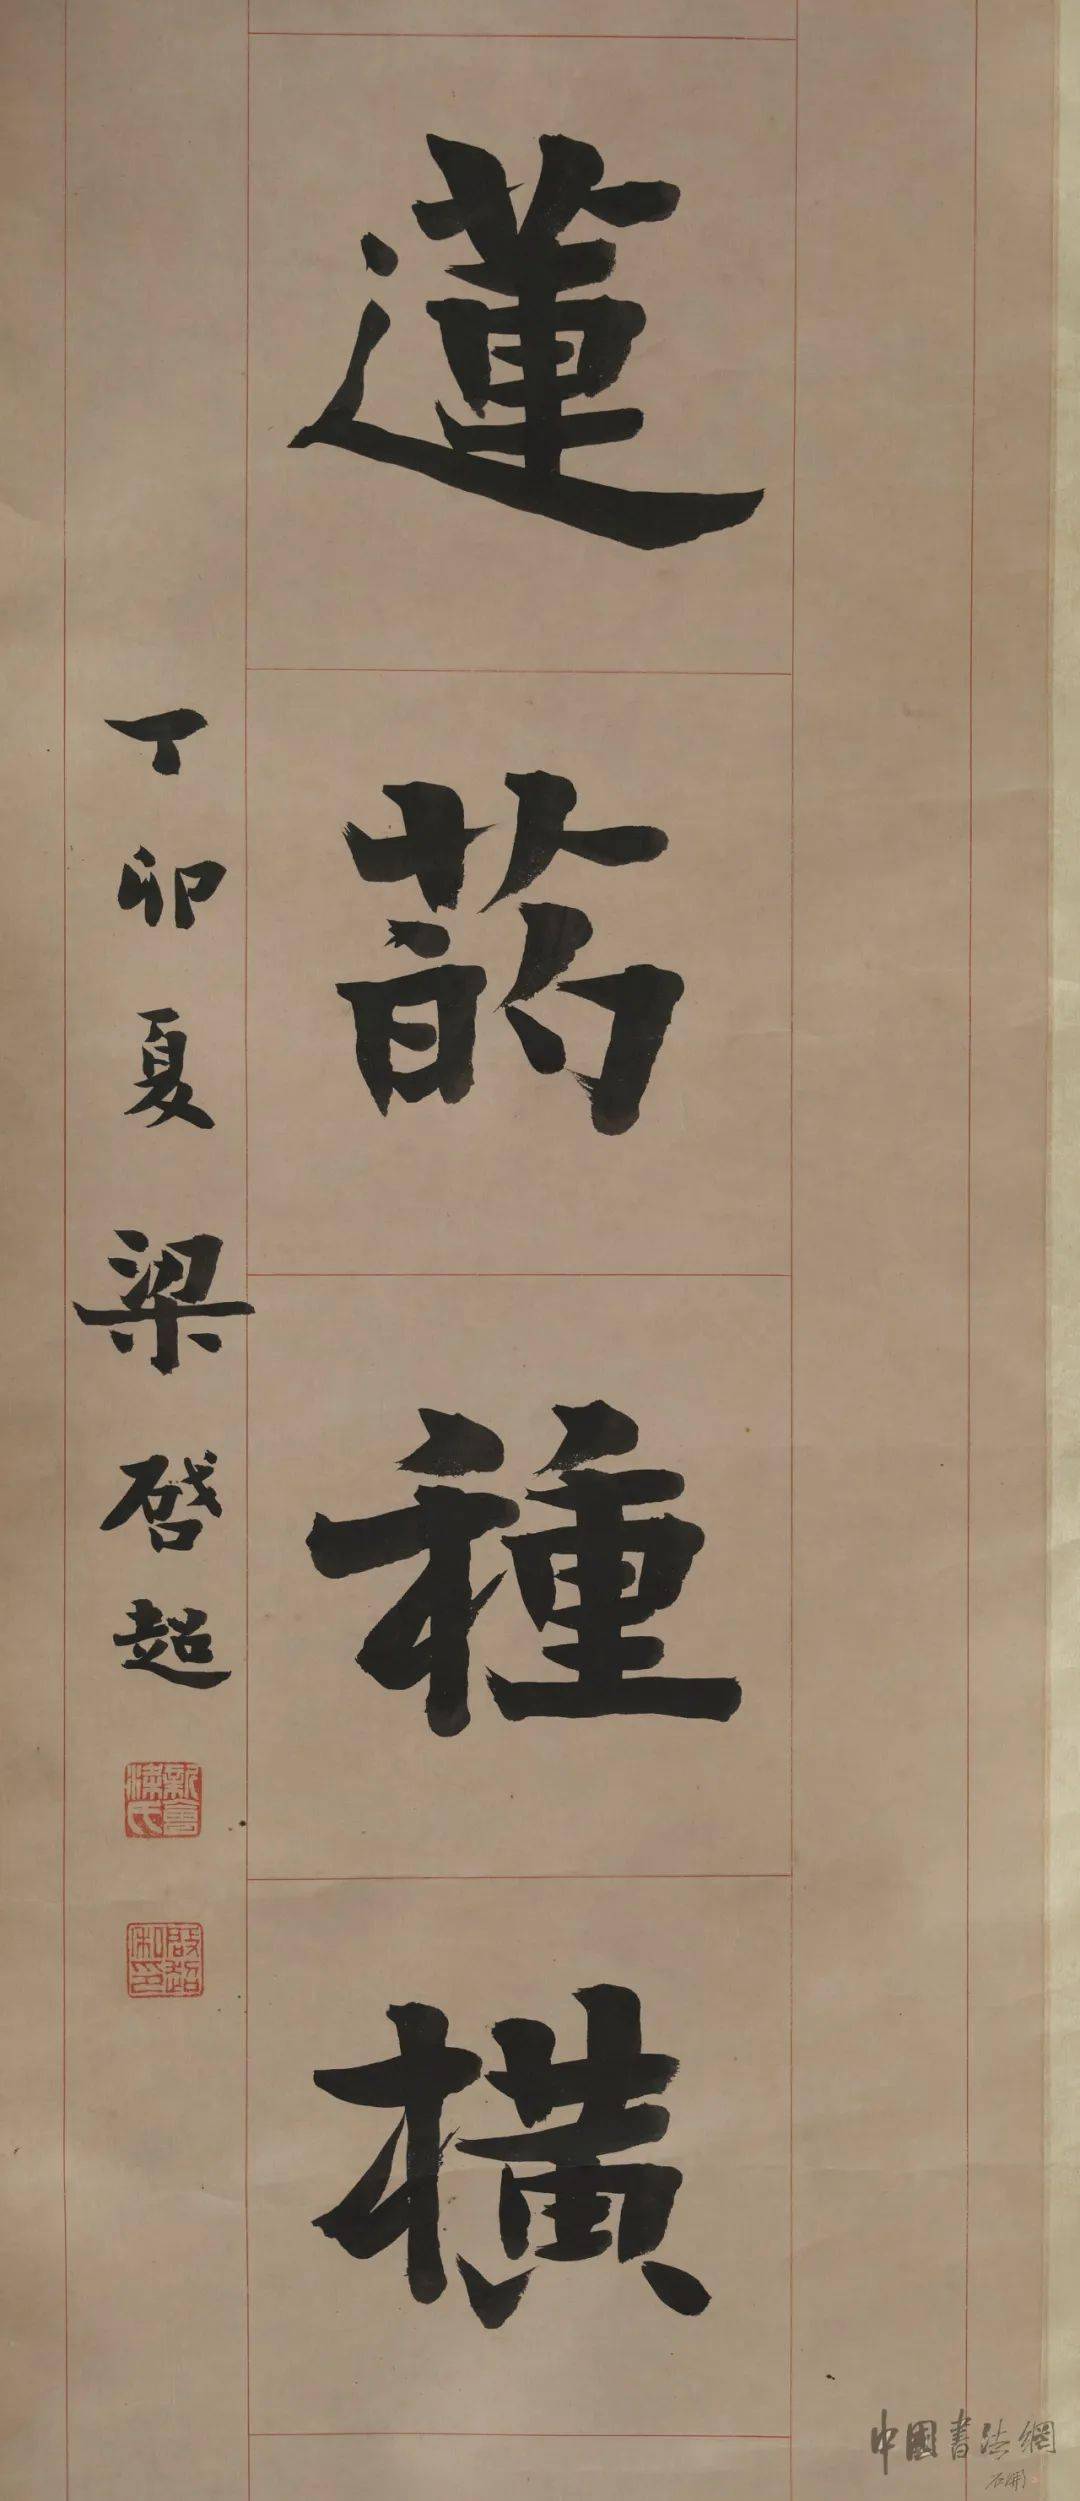 蓮菂種橫
丁卯夏梁啓超
新會梁氏
啟超私印
中國書法網